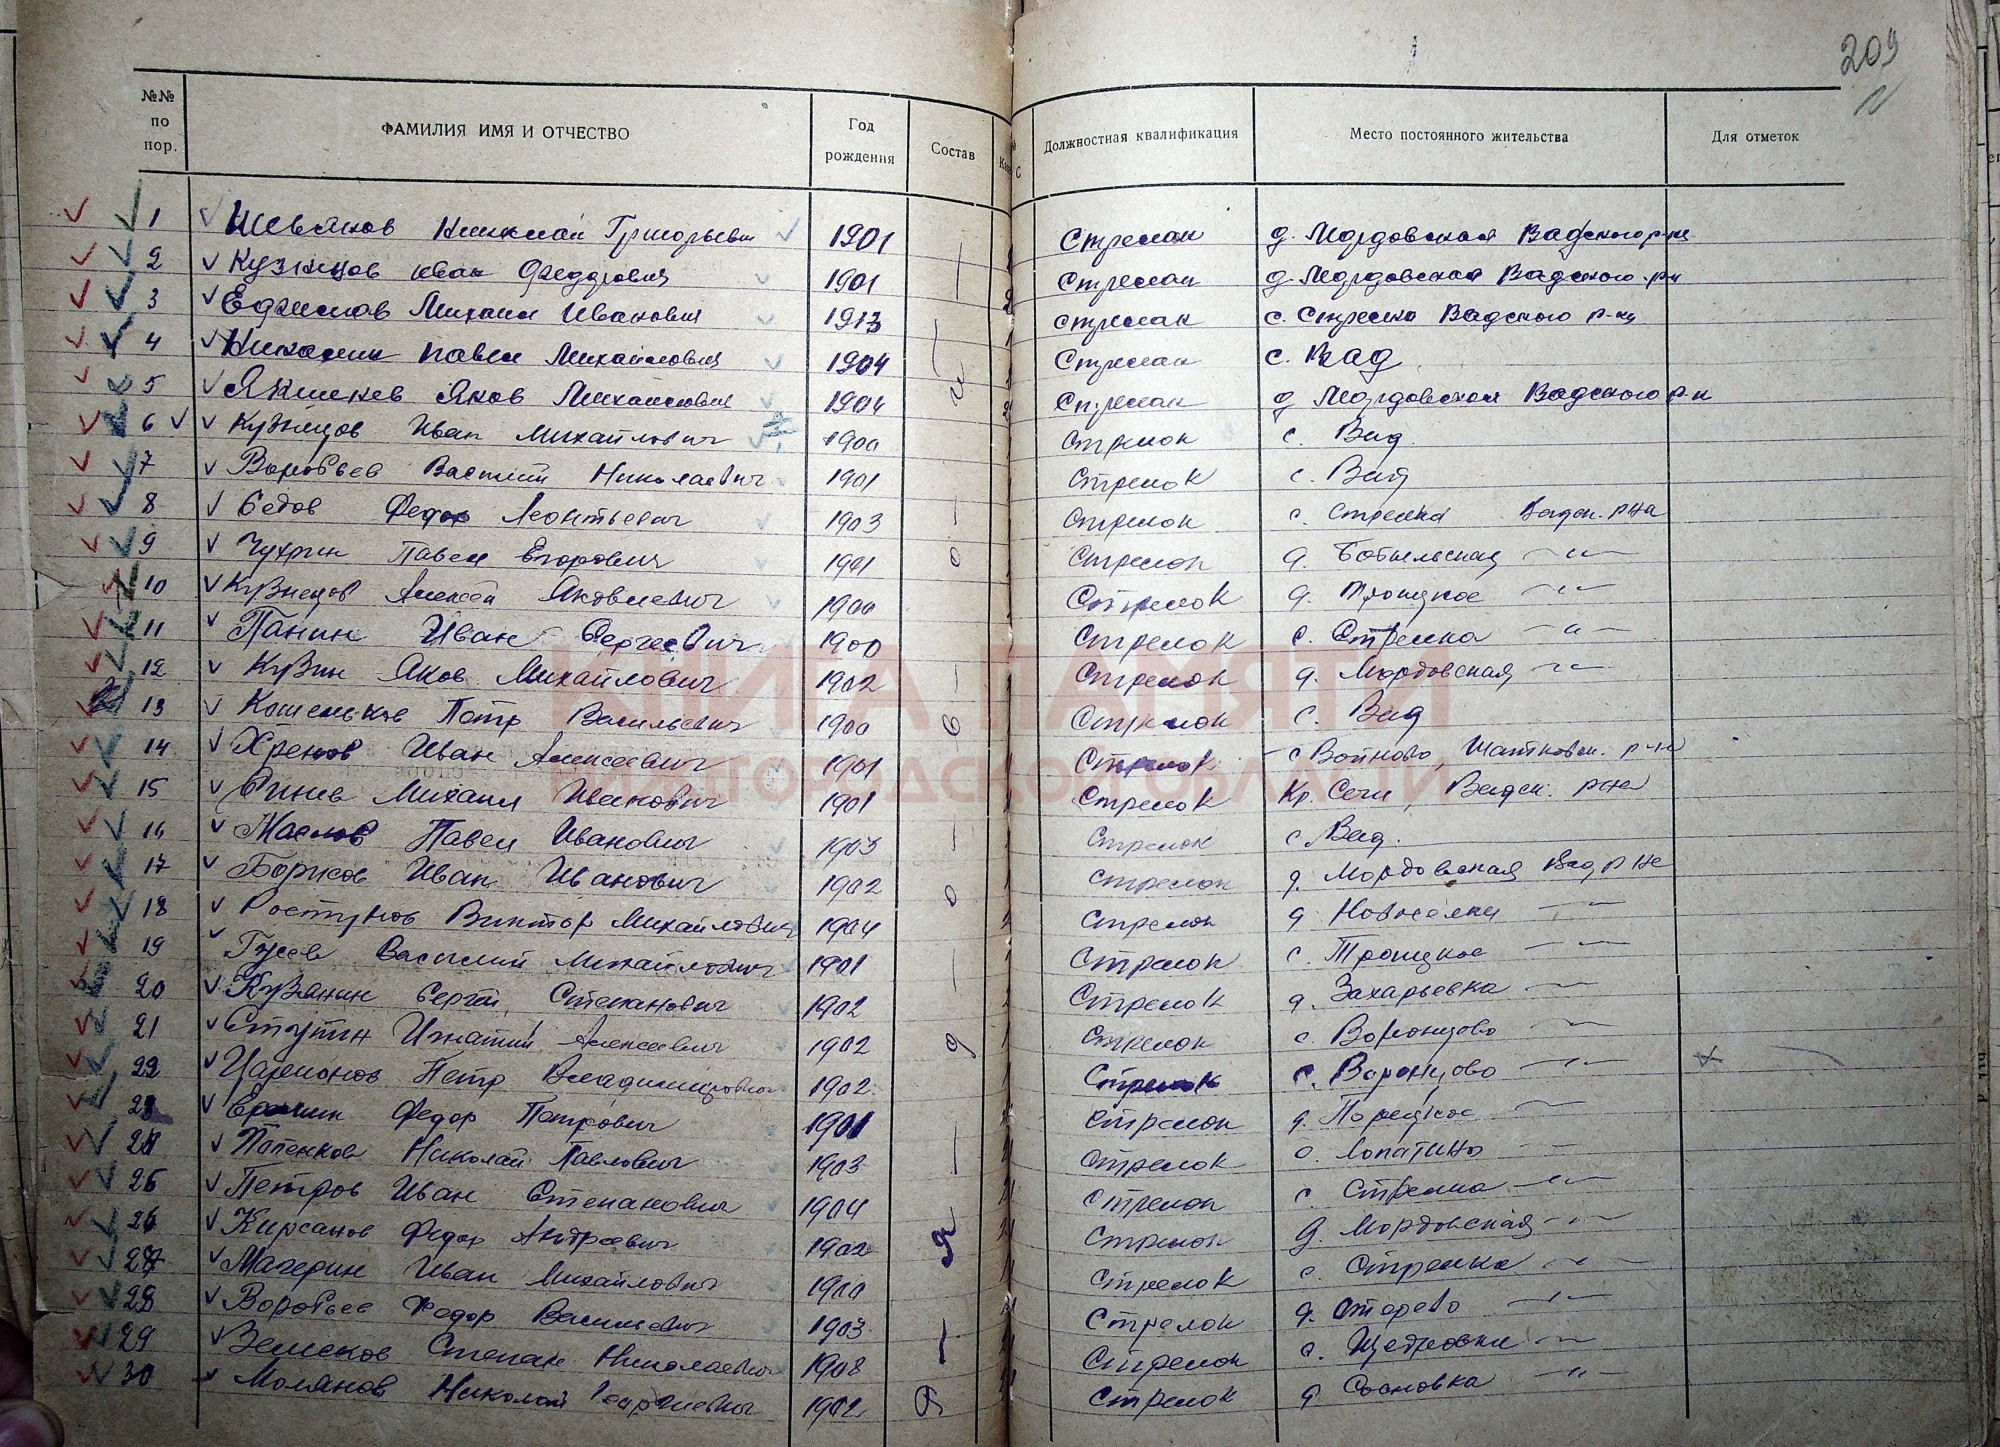 209
№№ по пор. ФАМИЛИЯ ИМЯ И ОТЧЕСТВО Год рождения Состав Должностная квалификация Место постоянного жительства Для отметок
1 Шевяков Николай Григорьевич 1901 Стрелок д. Мордовская Вадского р-на
2 Кузнецов Иван Федорович 1901 Стрелок д. Мордовская Вадского р-н
3 Ефимов Михаил Иванович 1913 Стрелок с. Стрелка Вадского р-на
4 Никалин Павел Михайлович 1904 Стрелок с. Вад
5 Яков Михайлович 1904 Стрелок д Мордовская Вадского р-н
6 Кузнецов Иван Михайлович 1900 Стрелок с. Вад
7 Воробьев Василий Николаевич 1901 Стрелок с. Вад
8 Седов Федор Леонтьевич 1903 Стрелок с. Стрелка Вадск. р-на
9 Чухрин Павел Егорович 1901 Стрелок д. Бобыльская —"—
10 Кузнецов Алексей Яковлевич 1900 Стрелок д. Троицкое —"—
11 Панин Иван Сергеевич 1900 Стрелок с. Стрелка —"—
12 Кузин Яков Михайлович 1902 Стрелок д. Мордовская —"—
13 Кошельков Петр Васильевич 1900 Стрелок с. Вад
14 Хренов Иван Алексеевич 1901 Стрелок с Войново, Шатковск. р-н
15 Синев Михаил Иванович 1901 Стрелок Кр. Сечи, Вадск. р-на
16 Маслов Павел Иванович 1903 Стрелок с Вад.
17 Борисов Иван Иванович 1902 Стрелок д. Мордовская Вад р-на
18 Ростунов Виктор Михайлович 1904 Стрелок д Новоселки —"—
19 Гусев Василий Михайлович 1901 Стрелок с. Троицкое —"—
20 Кузянин Сергей Степанович 1902 Стрелок д. Захарьевка —"—
21 Ступин Игнатий Алексеевич 1902 Стрелок с. Воронцово —"—
22 Петр Владимирович 1902 Стрелок с. Воронцово —"—
23 Федор Петрович 1901 Стрелок д. Порецкое —"—
24 Папенков Николай Павлович 1903 Стрелок с. Лопатино —"—
25 Петров Иван Степанович 1904 Стрелок с. Стрелка —"—
26 Кирсанов Федор Андреевич 1902 Стрелок д. Мордовская —"—
27 Материн Иван Михайлович 1900 Стрелок с. Стрелка —"—
28 Воробьев Федор Васильевич 1903 Стрелок д. —"—
29 Земсков Степан Николаевич 1908 Стрелок с. —"—
30 Молянов Николай 1902 Стрелок д Сосновка —"—
КНИГА ПАМЯТИ
НИЖЕГОРОДСКОЙ ОБЛАСТИ